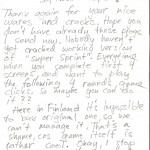 Thanx again for your nice
wares and cracks. Hope you
don't have already these plans
I send now. Nobody haven't
yet cracked working version
of "super sprint". Everything
when you complete
screens, and want to play
the following 4 rounds game
sticks so maybe you can do
it??
Here in Finland it's impossible
to buy original one, so we
can't manage it. That's a
shame, cos game itself is
rather cool. Okay, I stop